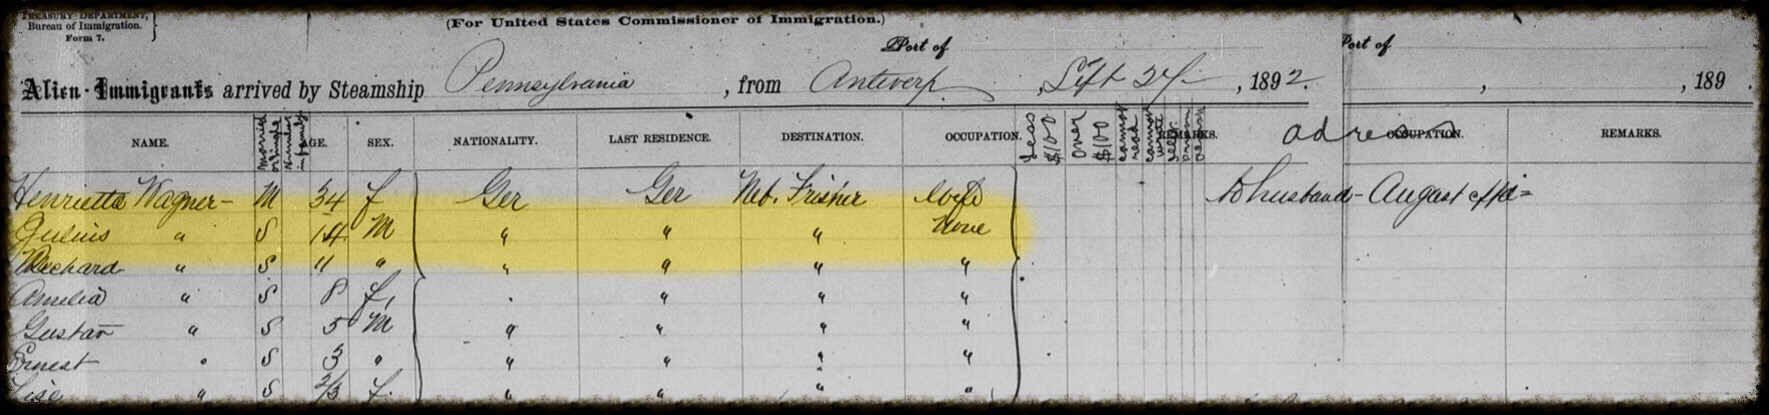 TREASURY DEPARTMENT,
Bureau of Immigration.
Form 7.
(For United States Commissioner of Immigration.)
Port of
Port of
Alien Immigrants arrived by Steamship Pennsylvania, from Antwerp, Sept 27, 1892.
, , 189 .
NAME. Married or single Number in family AGE. SEX. NATIONALITY. LAST RESIDENCE. DESTINATION. OCCUPATION. Less $100 over $100 cannot read cannot write REMARKS. adress OCCUPATION. REMARKS.
Henrietta Wagner - M 34 f Ger Ger Neb. Wife to husband - August
Julius " S 14 M " " " None
Richard " S 11 " " " " "
Amelia " S 8 f, " " "
Gustav " S 5 M " " " "
Ernest " S 3 " " " " "
" S f. " " " "